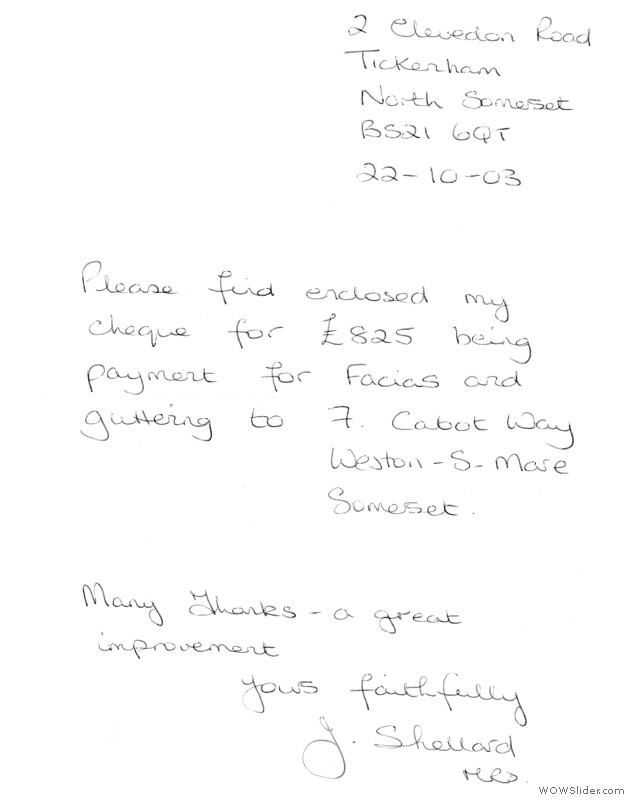 2 Clevedon Road
Tickenham
North Somerset
BS21 6QT
22-10-03
Please find enclosed my
cheque for £825 being
payment for Facias and
guttering to 7. Cabot Way
Weston-S-Mare
Somerset.
Many Thanks - a great
improvement
yours faithfully
J. Shellard
MRS.
WOWSlider.com